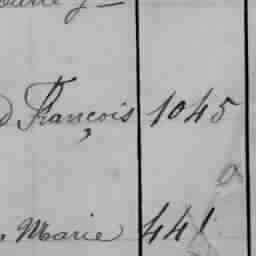 François 1045
Marie 441